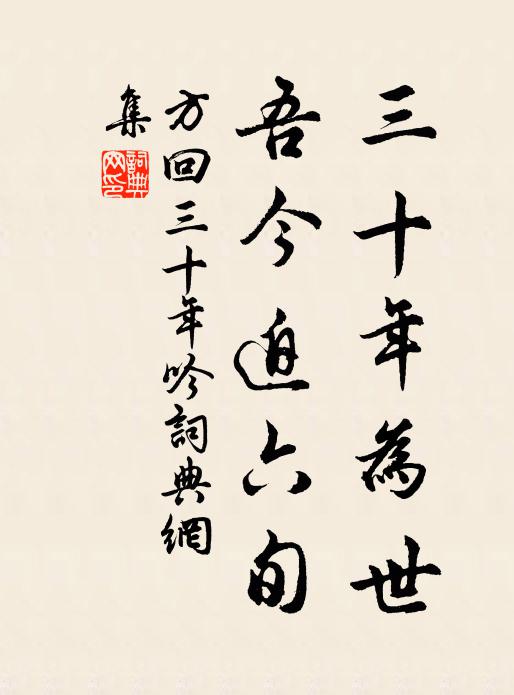 三十年為世
吾今迫六旬
方回三十年吟詞典網
集
詞典
网印